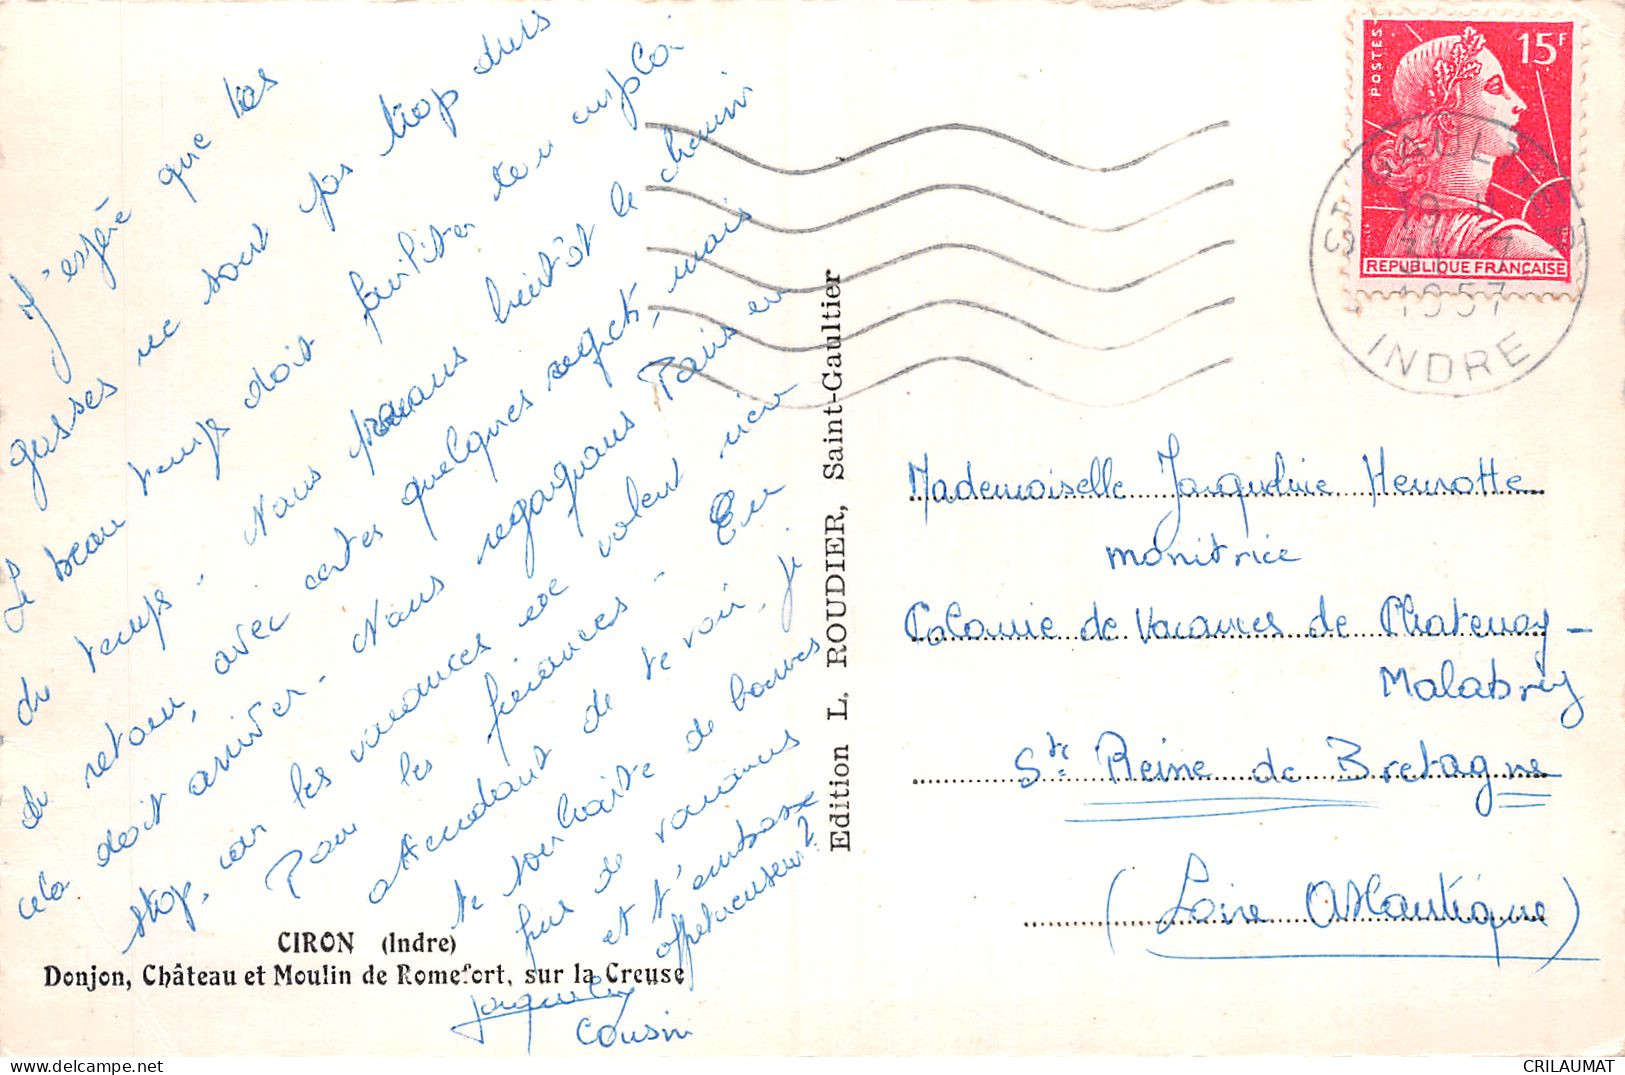 J'espère que les
gosses ne sont pas trop durs
Le beau temps doit faciliter ton emploi
du temps. Nous prenons bientôt le chemin
de retour, avec certes quelques regrets, mais
cela doit arriver. Nous regagnons Paris en
stop, car les vacances ne valent rien
Pour les finances. En
attendant de te voir, je
te souhaite de bonnes
fin de vacances
et t'embrasse
affectueusement
Cousin
CIRON (Indre)
Donjon, Château et Moulin de Romefort, sur la Creuse
Edition L. ROUDIER, Saint-Gaultier
POSTES
15F
REPUBLIQUE FRANÇAISE
ST GAULTIER
19 H
31 - 7
1957
INDRE
Mademoiselle Jacqueline Henrotte
monitrice
Colonie de Vacances de Chatenay-
Malabry
Ste Reine de Bretagne
(Loire Atlantique)
CRILAUMAT